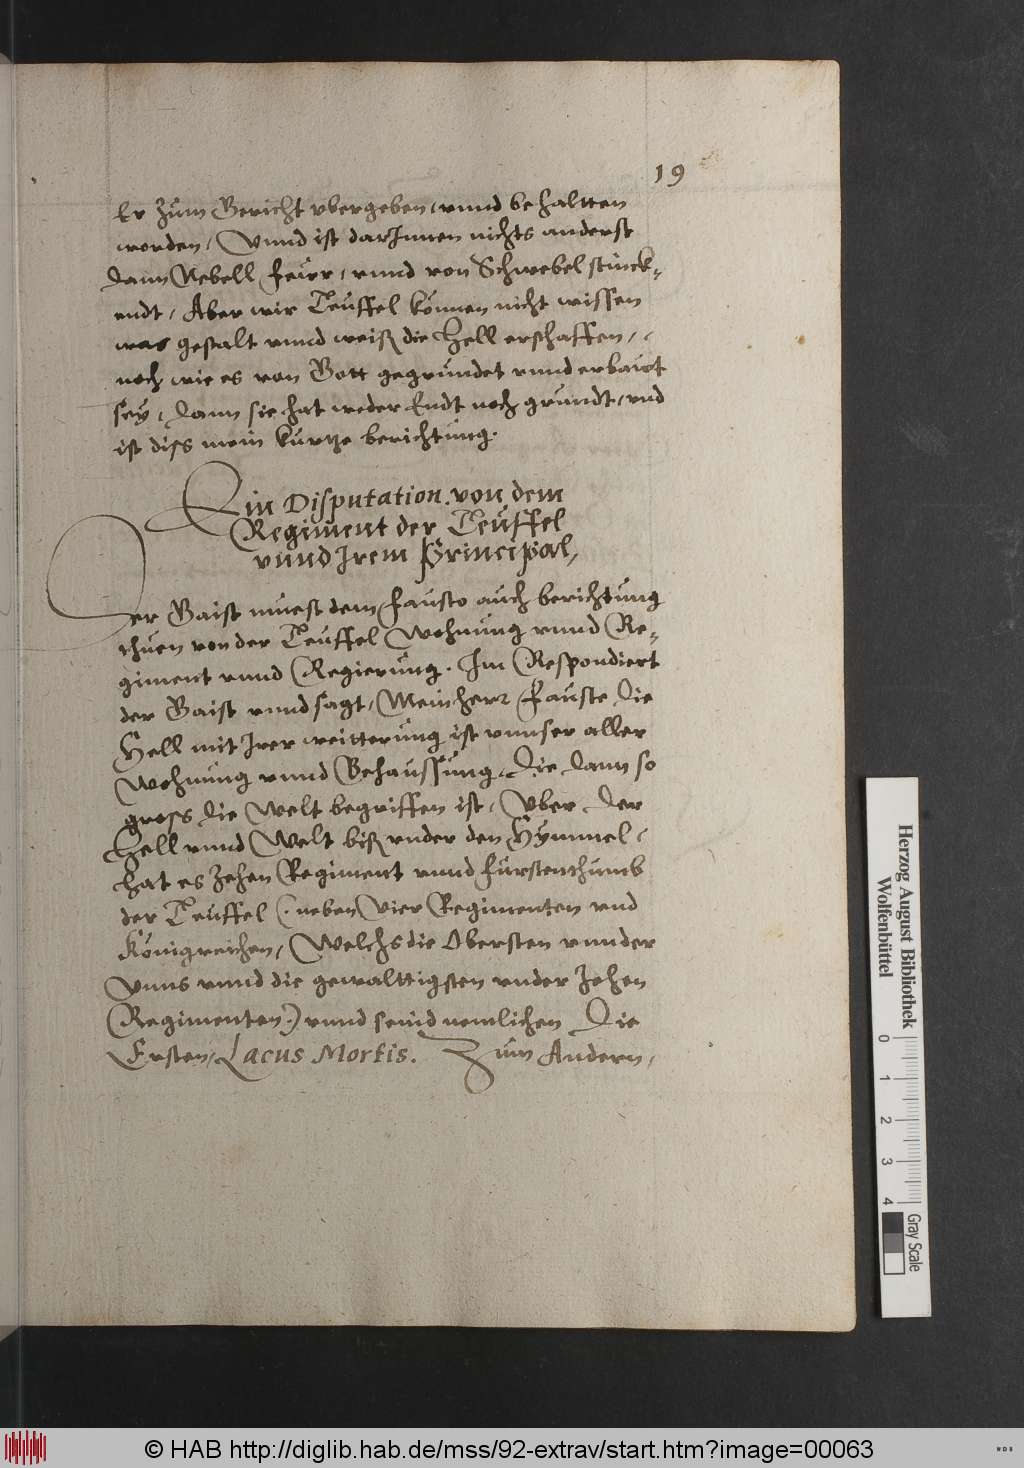 19
Er zum Gericht vbergeben, vnnd behaltten
worden, Vnnd ist darInnen nichts anderst
dann Nebell, fewr, vnnd von Schwebel stinck-
endt, Aber wir Teuffel können nicht wissen
was gestalt vnnd weiß die Hell erschaffen,
noch wie es von Gott gegrundet vnnd erbawt
sey, dann sie hat weder Endt noch grundt, vnd
ist diss mein kurtze berichtung.
Ein Disputation von dem
Regiment der Teuffel
vnnd Irem Principal,
Der Gaist muest dem Fausto auch berichtung
thuen von der Teuffel Wohnung vnnd Re-
giment vnnd Regierung. Im Respondiert
der Gaist vnnd sagt, Mein herr Fauste die
Hell mit Irer weitterung ist vnnser aller
Wohnung vnnd Behaussung, die dann so
gross die Welt begriffen ist, Vber der
Hell vnnd Welt biß vnder den Hymmel,
hat es zehen Regiment vnnd furstenthumb
der Teuffel (: neben Vier Regimenten vnd
Königreichen, Welchs die Obersten vnnder
Vnns vnnd die gewalttigsten vnder zehen
Regimenten :) vnnd seind nemlichen Die
Ersten, Lacus Mortis. Zum Andern,
Herzog August Bibliothek
Wolfenbüttel
0
1
2
3
4
Gray Scale
© HAB http://diglib.hab.de/mss/92-extrav/start.htm?image=00063